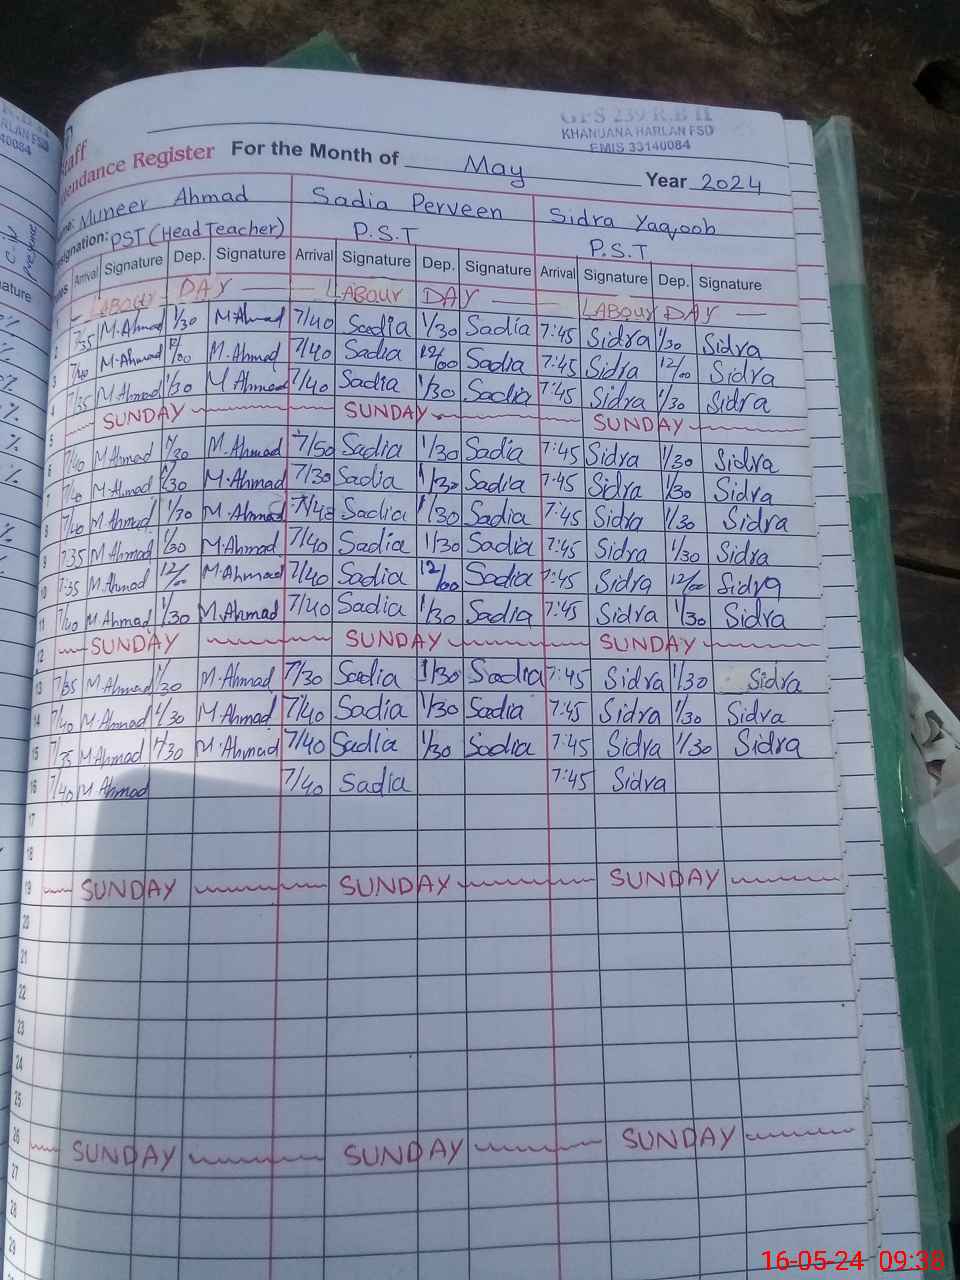 GPS 239 R.B II
KHANUANA HARLAN FSD
EMIS 33140084
Attendance Register For the Month of May Year 2024
Muneer Ahmad Sadia Perveen Sidra Yaqoob
Designation: PST (Head Teacher) P.S.T P.S.T
Arrival Signature Dep. Signature Arrival Signature Dep. Signature Arrival Signature Dep. Signature
1 LABOUR DAY LABOUR DAY LABOUR DAY
2 7/35 M.Ahmad 1/30 M.Ahmad 7/40 Sadia 1/30 Sadia 7:45 Sidra 1/30 Sidra
3 7/40 M.Ahmad 12/00 M.Ahmad 7/40 Sadia 12/00 Sadia 7:45 Sidra 12/00 Sidra
4 7/35 M.Ahmad 1/30 M.Ahmad 7/40 Sadia 1/30 Sadia 7:45 Sidra 1/30 Sidra
5 SUNDAY SUNDAY SUNDAY
6 7/40 M.Ahmad 1/30 M.Ahmad 7/50 Sadia 1/30 Sadia 7:45 Sidra 1/30 Sidra
7 7/40 M.Ahmad 1/30 M.Ahmad 7/30 Sadia 1/30 Sadia 7:45 Sidra 1/30 Sidra
8 7/40 M.Ahmad 1/30 M.Ahmad 7/42 Sadia 1/30 Sadia 7:45 Sidra 1/30 Sidra
9 7:35 M.Ahmad 1/30 M.Ahmad 7/40 Sadia 1/30 Sadia 7:45 Sidra 1/30 Sidra
10 7:35 M.Ahmad 12/00 M.Ahmad 7/40 Sadia 12/00 Sadia 7:45 Sidra 12/00 Sidra
11 7/40 M.Ahmad 1/30 M.Ahmad 7/40 Sadia 1/30 Sadia 7:45 Sidra 1/30 Sidra
12 SUNDAY SUNDAY SUNDAY
13 7/35 M.Ahmad 1/30 M.Ahmad 7/30 Sadia 1/30 Sadia 7:45 Sidra 1/30 Sidra
14 7/40 M.Ahmad 1/30 M.Ahmad 7/40 Sadia 1/30 Sadia 7:45 Sidra 1/30 Sidra
15 7/35 M.Ahmad 1/30 M.Ahmad 7/40 Sadia 1/30 Sadia 7:45 Sidra 1/30 Sidra
16 7/40 M.Ahmad 7/40 Sadia 7:45 Sidra
17
18
19 SUNDAY SUNDAY SUNDAY
20
21
22
23
24
25
26 SUNDAY SUNDAY SUNDAY
27
28
29
16-05-24 09:38